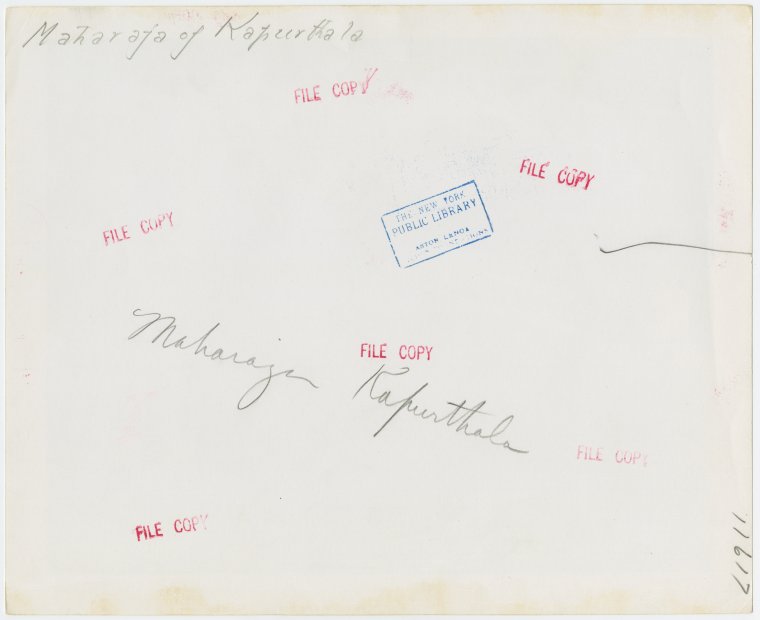 Maharaja of Kapurthala
FILE COPY
FILE COPY
THE NEW YORK
PUBLIC LIBRARY
ASTOR LENOX
FILE COPY
Maharaja Kapurthala
FILE COPY
FILE COPY
FILE COPY
11617